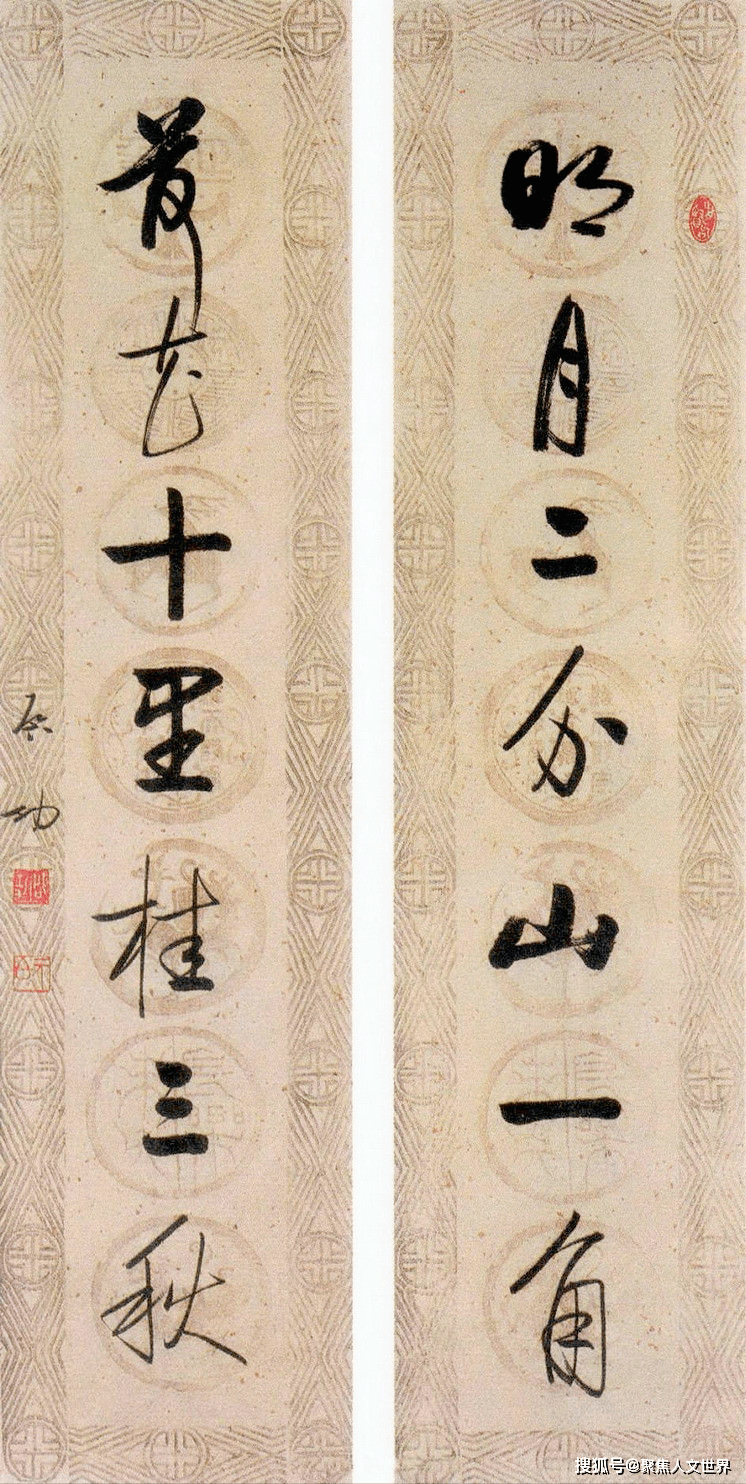 明月二分山一角
荷花十里桂三秋
启功
搜狐号@聚焦人文世界